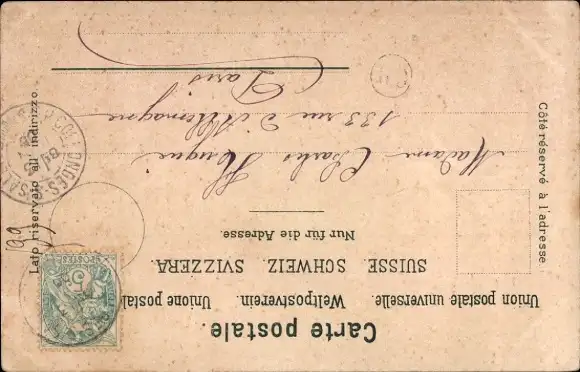 Carte postale.
Union postale universelle. Weltpostverein. Unione postal
SUISSE. SCHWEIZ. SVIZZERA.
Nur für die Adresse.
Côté réservé à l'adresse.
Lato riservato all'indirizzo.
Madame Charles
133 rue d'Allemagne
Paris
POSTES
5